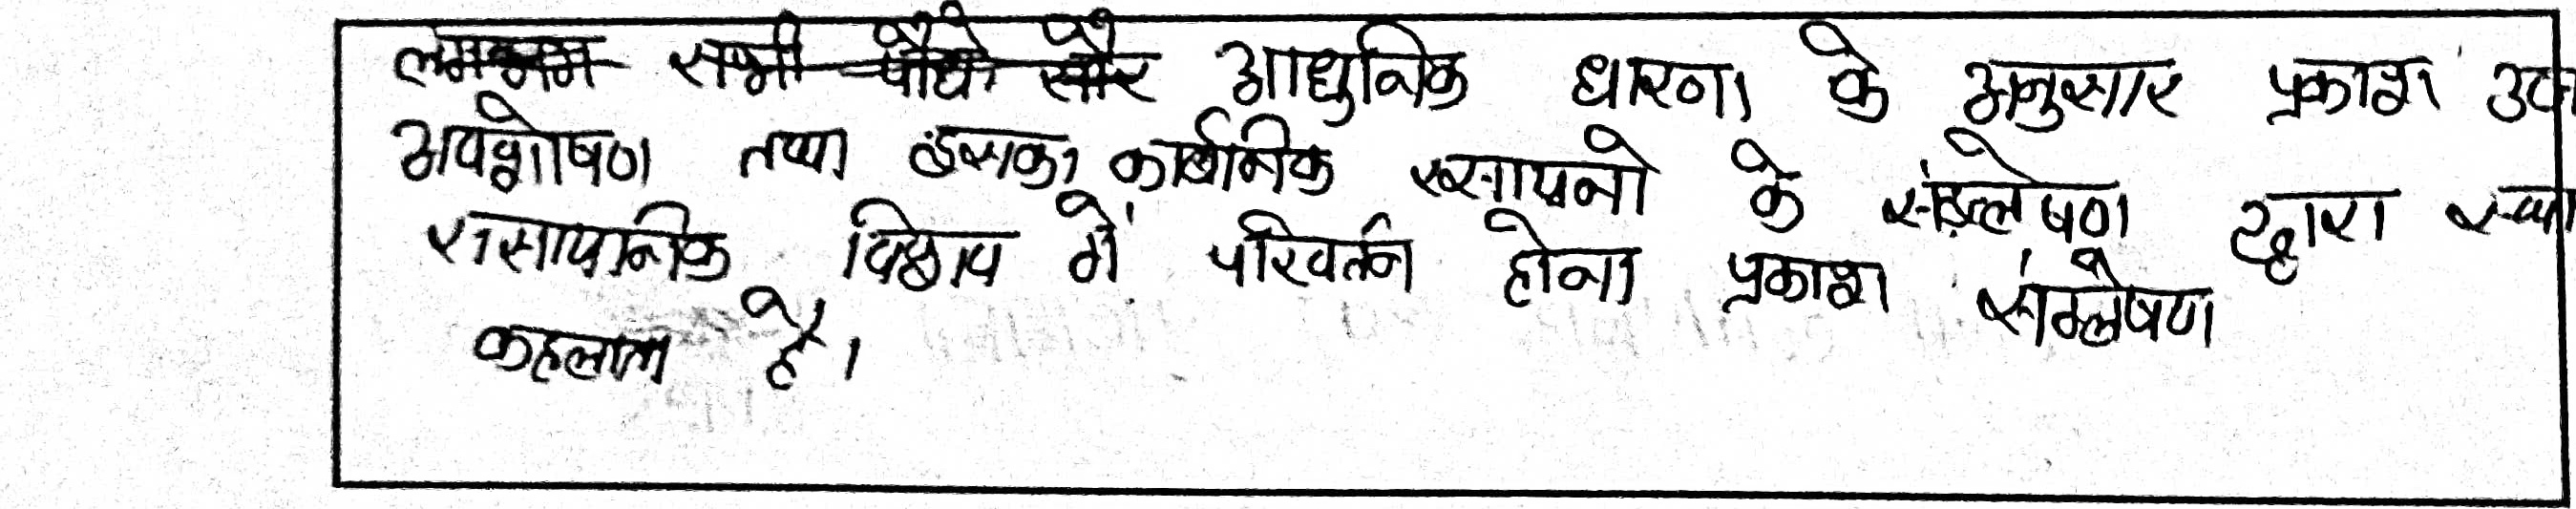 लगभग सभी पौधे सौर आधुनिक धारणा के अनुसार प्रकाश
अवशोषण तथा इसका कार्बनिक रसायनो के संश्लेषण द्वारा
रासायनिक विभव में परिवर्तन होना प्रकाश संश्लेषण
कहलाता है।